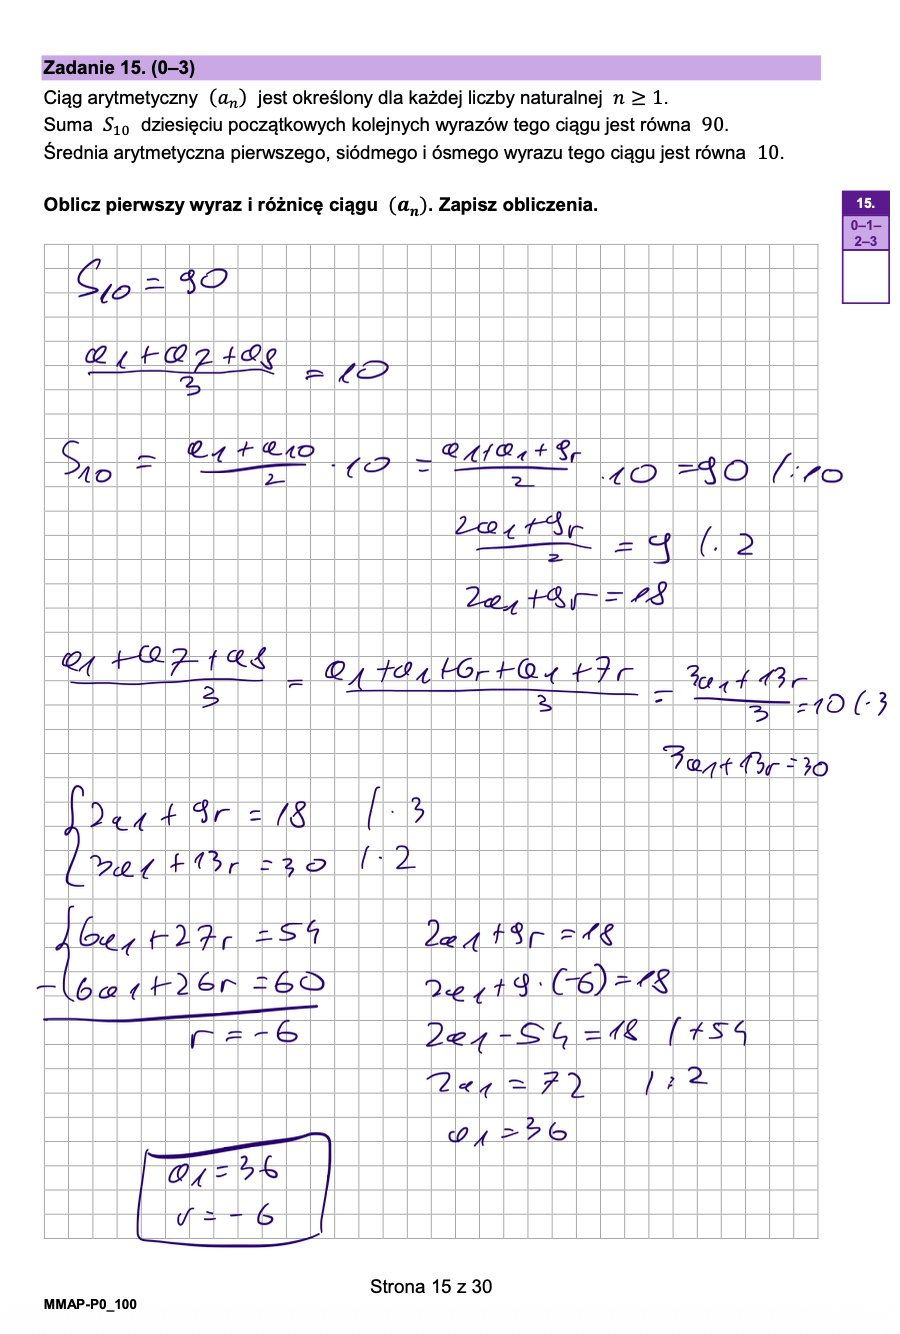 Zadanie 15. (0–3)
Ciąg arytmetyczny (aₙ) jest określony dla każdej liczby naturalnej n ≥ 1.
Suma S₁₀ dziesięciu początkowych kolejnych wyrazów tego ciągu jest równa 90.
Średnia arytmetyczna pierwszego, siódmego i ósmego wyrazu tego ciągu jest równa 10.
Oblicz pierwszy wyraz i różnicę ciągu (aₙ). Zapisz obliczenia.
15.
0–1–
2–3
S₁₀ = 90
(a1 + a7 + a8)/3 = 10
S₁₀ = (a1 + a10)/2 · 10 = (a1 + a1 + 9r)/2 · 10 = 90 /:10
(2a1 + 9r)/2 = 9 /· 2
2a1 + 9r = 18
(a1 + a7 + a8)/3 = (a1 + a1 + 6r + a1 + 7r)/3 = (3a1 + 13r)/3 = 10 /· 3
3a1 + 13r = 30
{ 2a1 + 9r = 18 /· 3
3a1 + 13r = 30 /· 2
{ 6a1 + 27r = 54
- 6a1 + 26r = 60
r = -6
2a1 + 9r = 18
2a1 + 9 · (-6) = 18
2a1 - 54 = 18 /+54
2a1 = 72 /: 2
a1 = 36
a1 = 36
r = -6
Strona 15 z 30
MMAP-P0_100